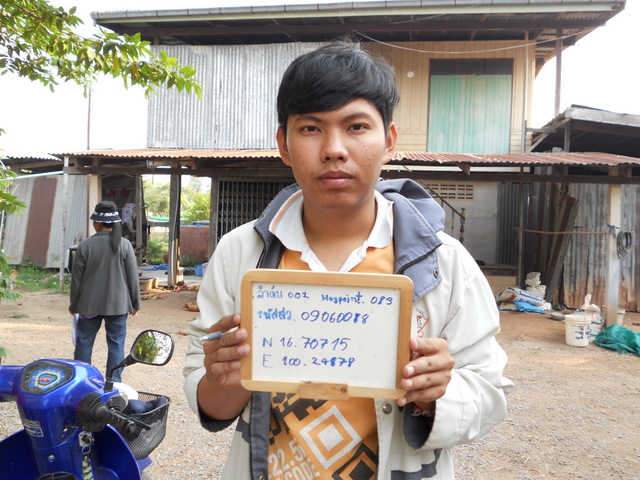 ลำดับ 002 Waypoint. 083
รหัสสว. 09060018
N 16.70715
E 100.24878
22.5